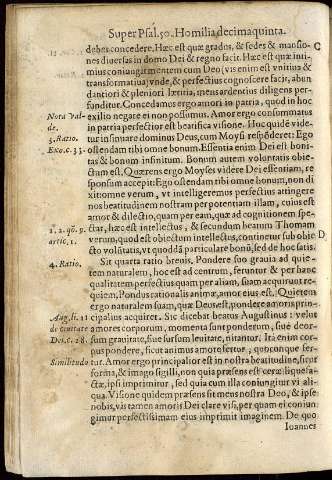 Super Psal. 50. Homilia decimaquinta.
debes concedere. Hæc est quæ gradus, & sedes & mansio-
nes diuersas in domo Dei & regno facit. Hæc est quæ inti-
mius coniungit mentem cum Deo (vis enim est vnitiua &
transformatiua) vnde, & perfectius cognoscere facit, abun
dantiori & pleniori lætitia, mens ardentius diligens per-
funditur. Concedamus ergo amori in patria, quod in hoc
Nota val- exilio negare ei non possumus. Amor ergo consummatus
de. in patria perfectior est beatifica visione. Hoc quidē vide-
3. Ratio. tur insinuare dominus Deus, cum Moysi respōderet: Ego
Exo. c. 33. ostendam tibi omne bonum. Essentia enim Dei est boni-
tas & bonum infinitum. Bonum autem voluntatis obie-
ctum est. Quærens ergo Moyses videre Dei essentiam, re
sponsum accepit: Ego ostendam tibi omne bonum, non di
xit omne verum, vt intelligeremus perfectius attingere
nos beatitudinem nostram per potentiam illam, cuius est
amor & dilectio, quam per eam, quæ ad cognitionem spe-
1. 2. qō. 9. ctat, hæc est intellectus, & secundum beatum Thomam
artic. 1. verum, quod est obiectum intellectus, continetur sub obie
cto volūtatis, vt quoddā particulare bonū, sed de hoc satis.
4. Ratio. Sit quarta ratio breuis. Pondere suo grauia ad quie-
tem naturalem, hoc est ad centrum, feruntur & per hanc
qualitatem perfectius quam per aliam, suam acquirunt re-
quiem, Pondus rationalis animæ, amor eius est. Quietem
ergo naturalem suam, quæ Deus est, pondere amoris prin-
Aug. li. 11 cipalius acquiret. Sic dicebat beatus Augustinus: velut
de ciuitate amores corporum, momenta sunt ponderum, siue deor-
Dei. c. 28. sum grauitate, siue sursum leuitate, nitantur. Ita enim cor-
pus pondere, sicut animus amore fertur, quocunque fer-
Similitudo tur. Amor ergo principalior est in nostra beatitudine, sicut
forma, & imago sigilli, non quia præsens est ceræ liquefa-
ctæ, ipsi imprimitur, sed quia cum illa coniungitur vi ali-
qua. Visione quidem præsens sit mens nostra Deo, & ipse
nobis, vis tamen amoris Dei clare visi, per quam ei coniun-
gimur perfectissimam eius imprimit imaginem. De quo
Ioannes